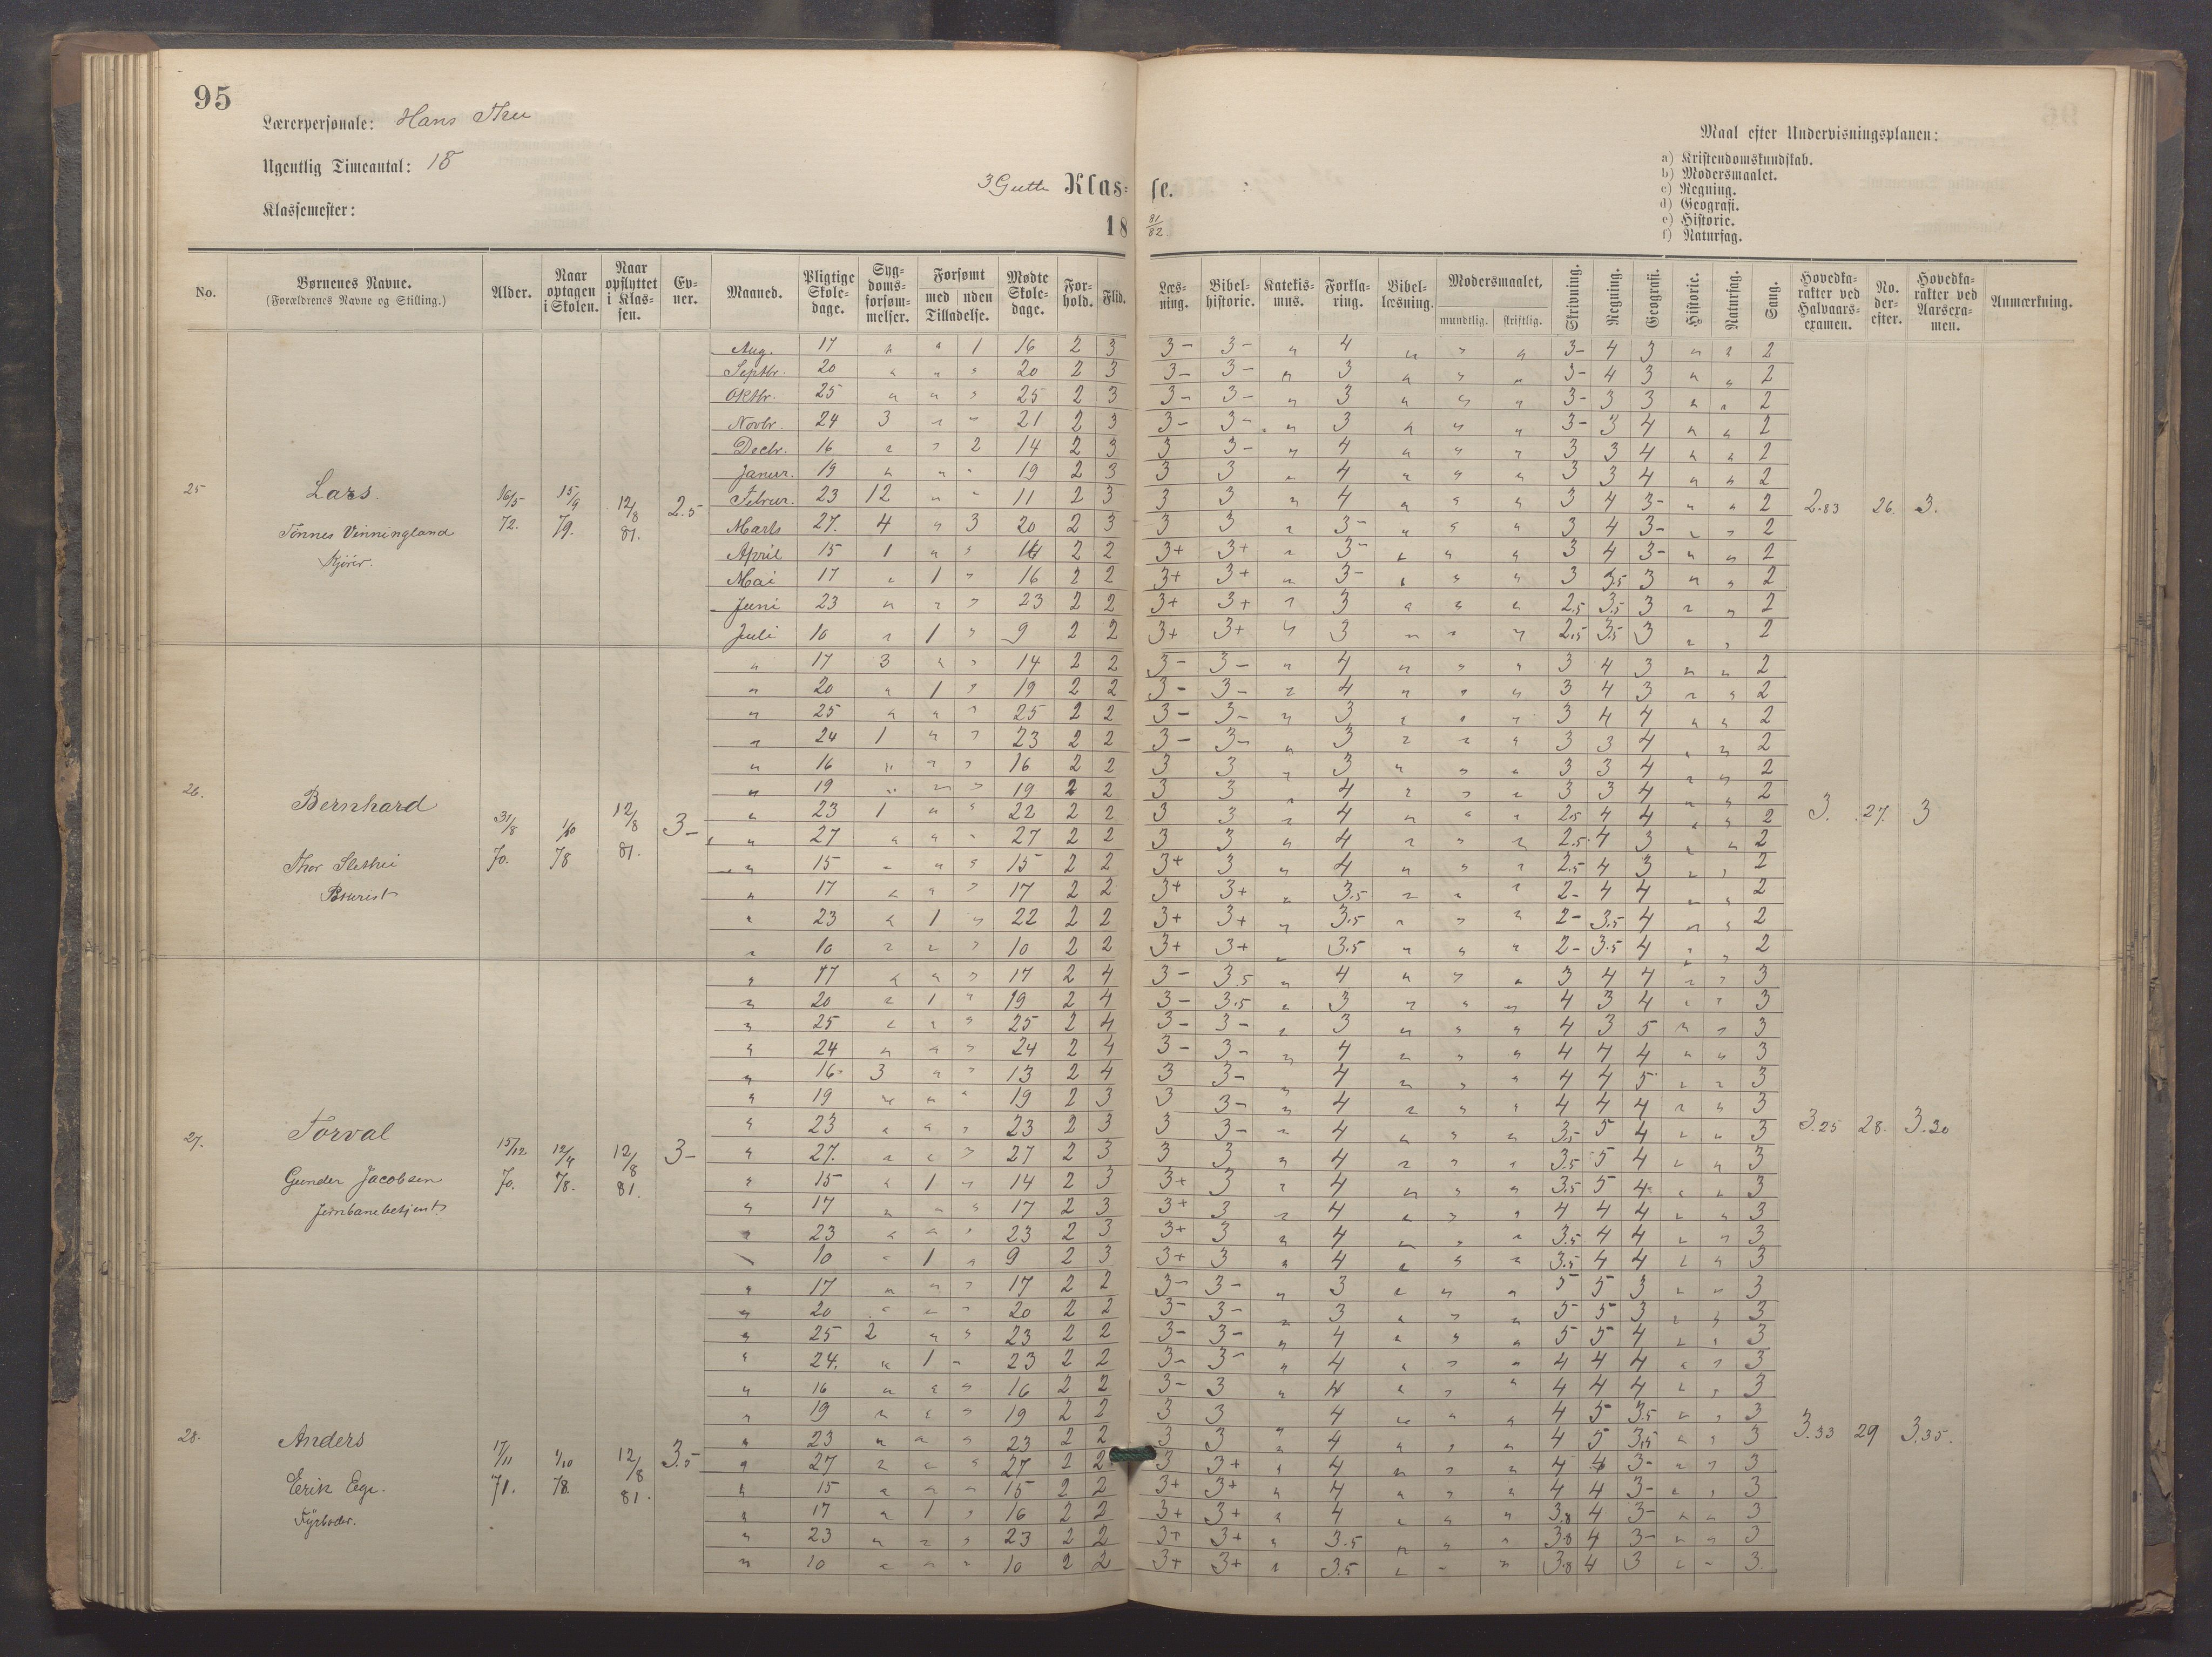 95
Lærerpersonale: Hans
Ugentlig Timeantal: 18
Klassemester:
3 Gutte Klas= se.
18 81/82.
Maal efter Undervisningsplanen:
a) Kristendomskundskab.
b) Modersmaalet.
c) Regning.
d) Geografi.
e) Historie.
f) Naturfag.
No. Børnenes Navne. (Forældrenes Navne og Stilling.) Alder. Naar optagen i Skolen. Naar opflyttet i Klas- sen. Ev- ner. Maaned. Pligtige Skole- dage. Syg- doms- forsøm- melser. Forsømt med uden Tilladelse. Mødte Skole- dage. For- hold. Flid. Læs- ning. Bibel- historie. Katekis- mus. Forkla- ring. Bibel- læsning. Modersmaalet, mundtlig. skriftlig. Skrivning. Regning. Geografi. Historie. Naturfag. Sang. Hovedka- rakter ved Halvaars- examen. No. der- efter. Hovedka- rakter ved Aarsexa- men. Anmærkning.
25 Lars. Tönnes Vinningland Kjörer. 16/5 72. 15/9 79. 12/8 81. 2.5 2.83 26. 3.
Aug. 17 " " 1 16 2 3 3- 3- " 4 " " " 3- 4 3 " " 2
Septbr. 20 " " " 20 2 3 3- 3- " 3 " " " 3- 4 3 " " 2
Oktbr. 25 " " " 25 2 3 3- 3- " 3 " " " 3- 3 3 " " 2
Novbr. 24 3 " " 21 2 3 3- 3- " 3 " " " 3- 3 4 " " 2
Decbr. 16 " " 2 14 2 3 3 3- " 4 " " " 3 3 4 " " 2
Januar. 19 " " " 19 2 3 3 3 " 4 " " " 3 3 4 " " 2
Februar. 23 12 " " 11 2 3 3 3 " 4 " " " 3 4 3- " " 2
Marts 27. 4 " 3 20 2 3 3 3 " 3- " " " 3 4 3- " " 2
April 15 1 " " 14 2 2 3+ 3+ " 3- " " " 3 4 3- " " 2
Mai 17 " 1 " 16 2 2 3+ 3+ " 3- " " " 3 3.5 3 " " 2
Juni 23 " " " 23 2 2 3+ 3+ " 3 " " " 2.5 3.5 3 " " 2
Juli 10 " 1 " 9 2 2 3+ 3+ " 3 " " " 2.5 3.5 3 " " 2
26. Bernhard Thor 31/8 70. 1/10 78 12/8 81. 3- 3. 27. 3
" 17 3 " " 14 2 2 3- 3- " 4 " " " 3 4 3 " " 2
" 20 " 1 " 19 2 2 3- 3- " 4 " " " 3 4 3 " " 2
" 25 " " " 25 2 2 3- 3- " 3 " " " 3 4 4 " " 2
" 24 1 " " 23 2 2 3- 3- " 3 " " " 3 3 4 " " 2
" 16 " " " 16 2 2 3 3 " 3 " " " 3 3 4 " " 2
" 19 " " " 19 2 2 3 3 " 4 " " " 3 3 4 " " 2
" 23 1 " " 22 2 2 3 3 " 4 " " " 2.5 4 4 " " 2
" 27 " " " 27 2 2 3 3 " 4 " " " 2.5 4 3 " " 2
" 15 " " " 15 2 2 3+ 3 " 4 " " " 2.5 4 3 " " 2
" 17 " " " 17 2 2 3+ 3+ " 3.5 " " " 2- 4 4 " " 2
" 23 " 1 " 22 2 2 3+ 3+ " 3.5 " " " 2- 3.5 4 " " 2
" 10 " " " 10 2 2 3+ 3+ " 3.5 " " " 2- 3.5 4 " " 2
27. Torval Gunder Jacobsen Jernbanebetjent. 15/12 70. 12/4 78. 12/8 81. 3- 3.25 28. 3.20
" 17 " " " 17 2 4 3- 3.5 " 4 " " " 3 4 4 " " 3
" 20 " 1 " 19 2 4 3- 3.5 " 3 " " " 4 3 4 " " 3
" 25 " " " 25 2 4 3- 3- " 3 " " " 4 3 5 " " 3
" 24 " " " 24 2 4 3- 3- " 4 " " " 4 4 4 " " 3
" 16 3 " " 13 2 4 3 3- " 4 " " " 4 4 5 " " 3
" 19 " " " 19 2 3 3 3- " 4 " " " 4 4 4 " " 3
" 23 " " " 23 2 3 3 3- " 4 " " " 3.5 5 4 " " 3
" 27. " " " 27 2 3 3 3 " 4 " " " 3.5 5 4 " " 3
" 15 " 1 " 14 2 3 3+ 3 " 4 " " " 3.5 5 4 " " 3
" 17 " " " 17 2 3 3+ 3 " 4 " " " 4 4 4 " " 3
" 23 " " " 23 2 3 3+ 3 " 4 " " " 3.5 4 4 " " 3
" 10 " 1 " 9 2 3 3+ 3 " 4 " " " 3.5 4 4 " " 3
28. Anders Erik Ege. Fyrböder. 17/11 71. 1/10 78. 12/8 81. 3.5 3.33 29 3.35.
" 17 " " " 17 2 2 3- 3- " 3 " " " 5 5 3 " " 3
" 20 " " " 20 2 2 3- 3- " 3 " " " 5 5 3 " " 3
" 25 2 " " 23 2 2 3- 3- " 4 " " " 5 5 4 " " 3
" 24. " 1 " 23 2 2 3- 3- " 4 " " " 4 4 4 " " 3
" 16 " " " 16 2 2 3- 3 " 4 " " " 4 4 4 " " 3
" 19 " " " 19 2 2 3 3 4 " " " 4 5 3.5 " " 3
" 23 " " " 23 2 2 3 3 " 4 " " " 4 5 3.5 " " 3
" 27 " " " 27 2 2 3 3+ " 4 " " " 4 4 3- " " 3
" 15 " " " 15 2 2 3+ 3+ " 4 " " " 4 4 3- " " 3
" 17 " 1 " 16 2 2 3+ 3+ " 4 " " " 3.8 4 3- " " 3
" 23 " " " 23 2 2 3+ 3+ " 3.5 " " " 3.8 4 3- " " 3
" 10 " " " 10 2 2 3+ 3+ " 3.5 " " " 3.8 4 3 " " 3